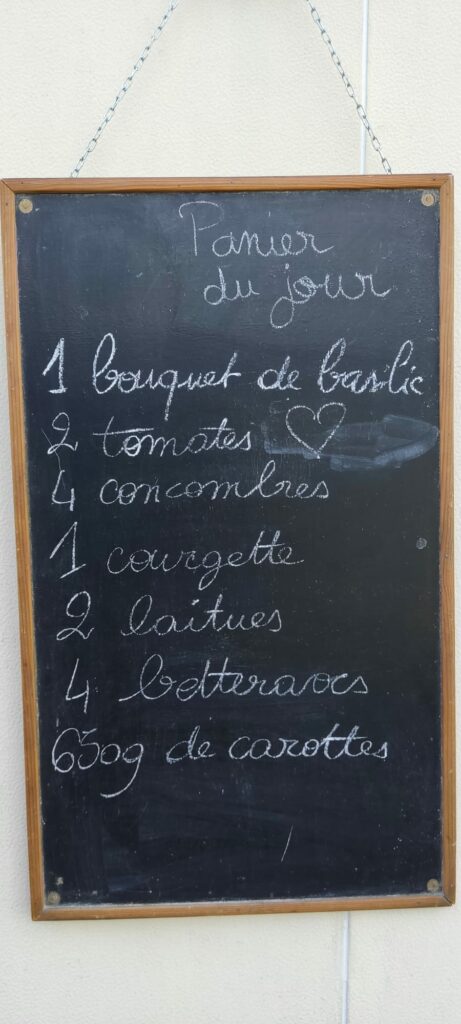 Panier
du jour
1 bouquet de basilic
2 tomates
4 concombres
1 courgette
2 laitues
4 betteraves
650g de carottes